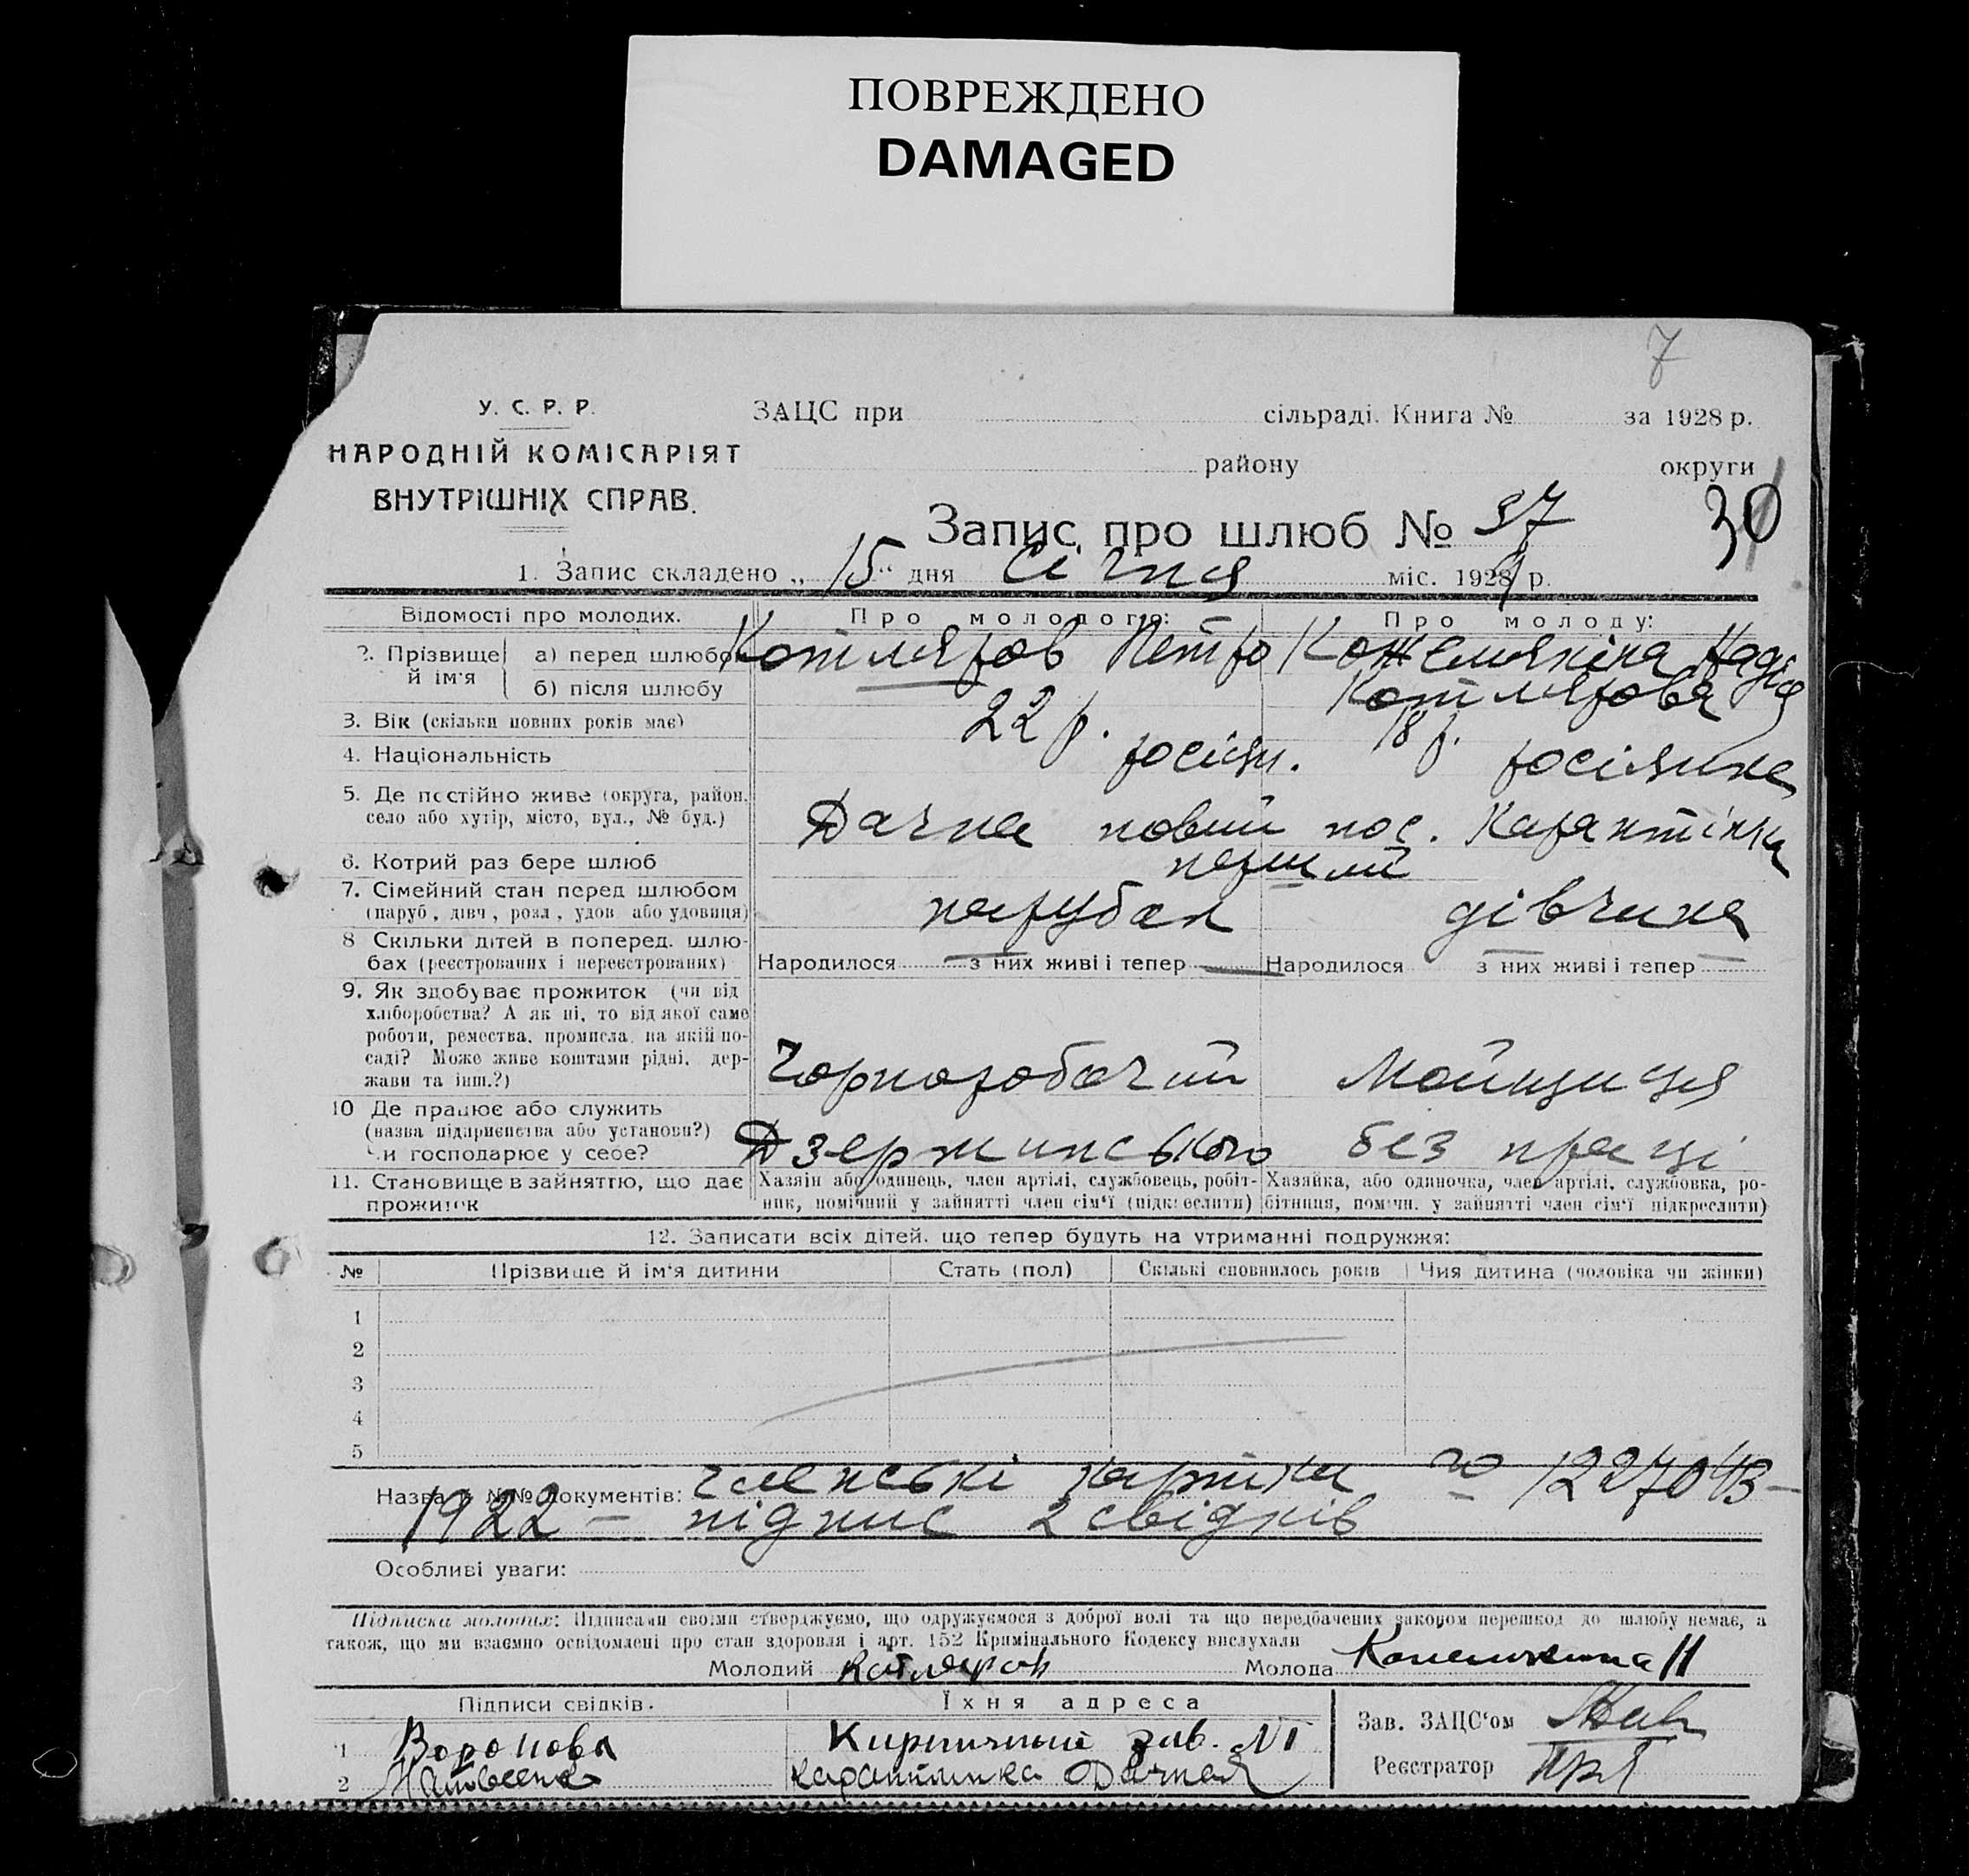 ПОВРЕЖДЕНО
DAMAGED
7
У. С. Р. Р.
НАРОДНІЙ КОМІСАРІЯТ
ВНУТРІШНІХ СПРАВ.
ЗАЦС при сільраді. Книга № за 1928 р.
району округи
30
Запис про шлюб № 37
1. Запис складено „ 15 “ дня Січня міс. 1929 р.
Відомості про молодих. Про молодого: Про молоду:
2. Прізвище й ім'я а) перед шлюбом Котляров Петро Кожемякіна Надія
б) після шлюбу Котлярова
3. Вік (скільки повних років має) 22 р. 18 р.
4. Національність росіян. росіянка
5. Де постійно живе (округа, район, село або хутір, місто, вул., № буд.) Дачна новий пос. Карантінка
6. Котрий раз бере шлюб перший
7. Сімейний стан перед шлюбом (паруб., дівч., розл., удов. або удовиця) парубак дівчина
8 Скільки дітей в поперед. шлюбах (реєстрованих і нереєстрованих) Народилося — з них живі і тепер — Народилося — з них живі і тепер —
9. Як здобуває прожиток (чи від хліборобства? А як ні, то від якої саме роботи, ремества, промисла, на якій посаді? Може живе коштами рідні, держави та інш.?) Чорноробочий Мойщиця
10 Де працює або служить (назва підприємства або установи?) Чи господарює у себе? Дзержинського без праці
11. Становище в зайняттю, що дає прожиток
Хазяїн або одинець, член артілі, службовець, робітник, помічний у зайнятті член сім'ї (підкреслити)
Хазяйка, або одиночка, член артілі, службовка, робітниця, помічн. у зайнятті член сім'ї підкреслити)
12. Записати всіх дітей, що тепер будуть на утриманні подружжя:
№ Прізвище й ім'я дитини Стать (пол) Скількі сповнилось років Чия дитина (чоловіка чи жінки)
1
2
3
4
5
Назва й №№ документів: членські картки 1227043 —
1922 — підпис 2 свідків
Особливі уваги:
Підписка молодих: Підписами своїми стверджуємо, що одружуємося з доброї волі та що передбачених законом перешкод до шлюбу немає, а
також, що ми взаємно освідомлені про стан здоровля і арт. 152 Кримінального Кодексу вислухали
Молодий Котляров Молода Кожемякина Н
Підписи свідків. Їхня адреса
1 Воронова Кирпичный зав. №1
2 Матвеенко Карантинка Дачная
Зав. ЗАЦС'ом
Реєстратор